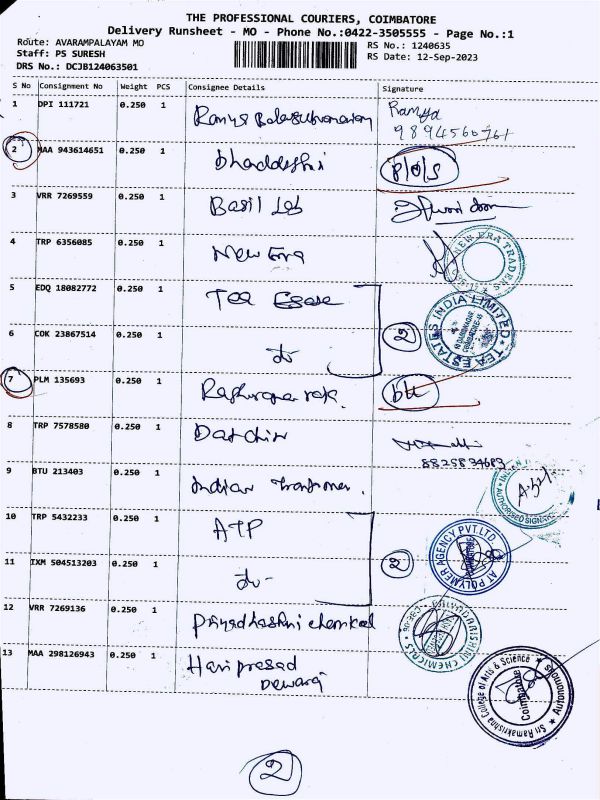 THE PROFESSIONAL COURIERS, COIMBATORE
Delivery Runsheet - MO - Phone No.:0422-3505555 - Page No.:1
Route: AVARAMPALAYAM MO
Staff: PS SURESH
DRS No.: DCJB124063501
RS No.: 1240635
RS Date: 12-Sep-2023
S No Consignment No Weight PCS Consignee Details Signature
1 DPI 111721 0.250 1 Ramya Balasubramaniam Ramya
9894560761
2 MAA 943614651 0.250 1
3 VRR 7269559 0.250 1 Basil Lab
4 TRP 6356085 0.250 1 New Era NEW ERA TRADERS
5 EDQ 18082772 0.250 1 Tea Estate TEA ESTATES INDIA LIMITED
6 COK 23867514 0.250 1 do 2
7 PLM 135693 0.250 1
8 TRP 7578580 0.250 1
8825834683
9 BTU 213403 0.250 1 Indian Transformer. AUTHORISED SIGNATORY
10 TRP 5432233 0.250 1 ATP AT POLYMER AGENCY PVT.LTD. COIMBATORE
11 IXM 504513203 0.250 1 do - 2
12 VRR 7269136 0.250 1 Priyadharshni chemical PRIYADHARSHINI CHEMICALS
13 MAA 298126943 0.250 1 Hari prasad
Dewaraj
Sri Ramakrishna College of Arts & Science Autonomous Coimbatore
2